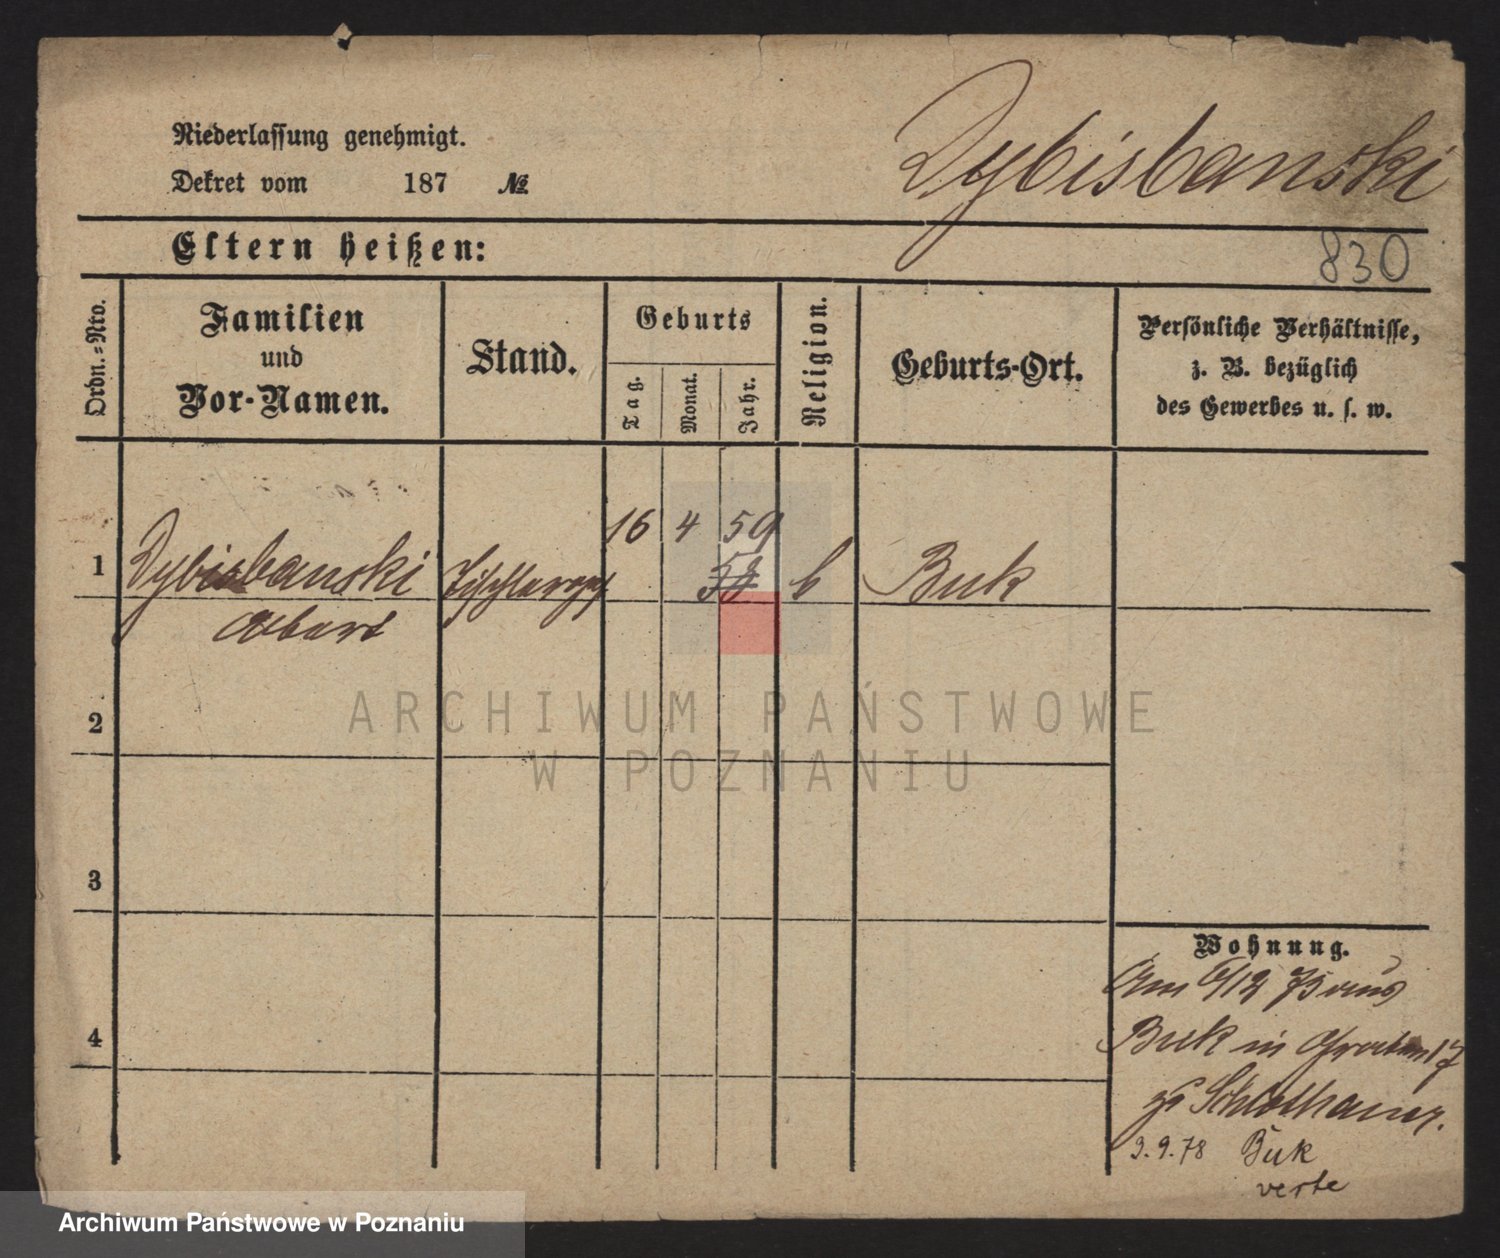 Niederlassung genehmigt.
Dekret vom 187 №
Dybisbanski
Eltern heißen:
830
Ordn.=Nro.
Familien
und
Vor-Namen.
Stand.
Geburts
Tag.
Monat.
Jahr.
Religion.
Geburts-Ort.
Persönliche Verhältnisse,
z. B. bezüglich
des Gewerbes u. s. w.
16 4 59
1 Dybisbanski Buk
Albert
2
3
4
ARCHIWUM PAŃSTWOWE
W POZNANIU
Wohnung.
Am 6/12 aus
Buk in Graben 17
3. 9. 78 Buk
verte
Archiwum Państwowe w Poznaniu